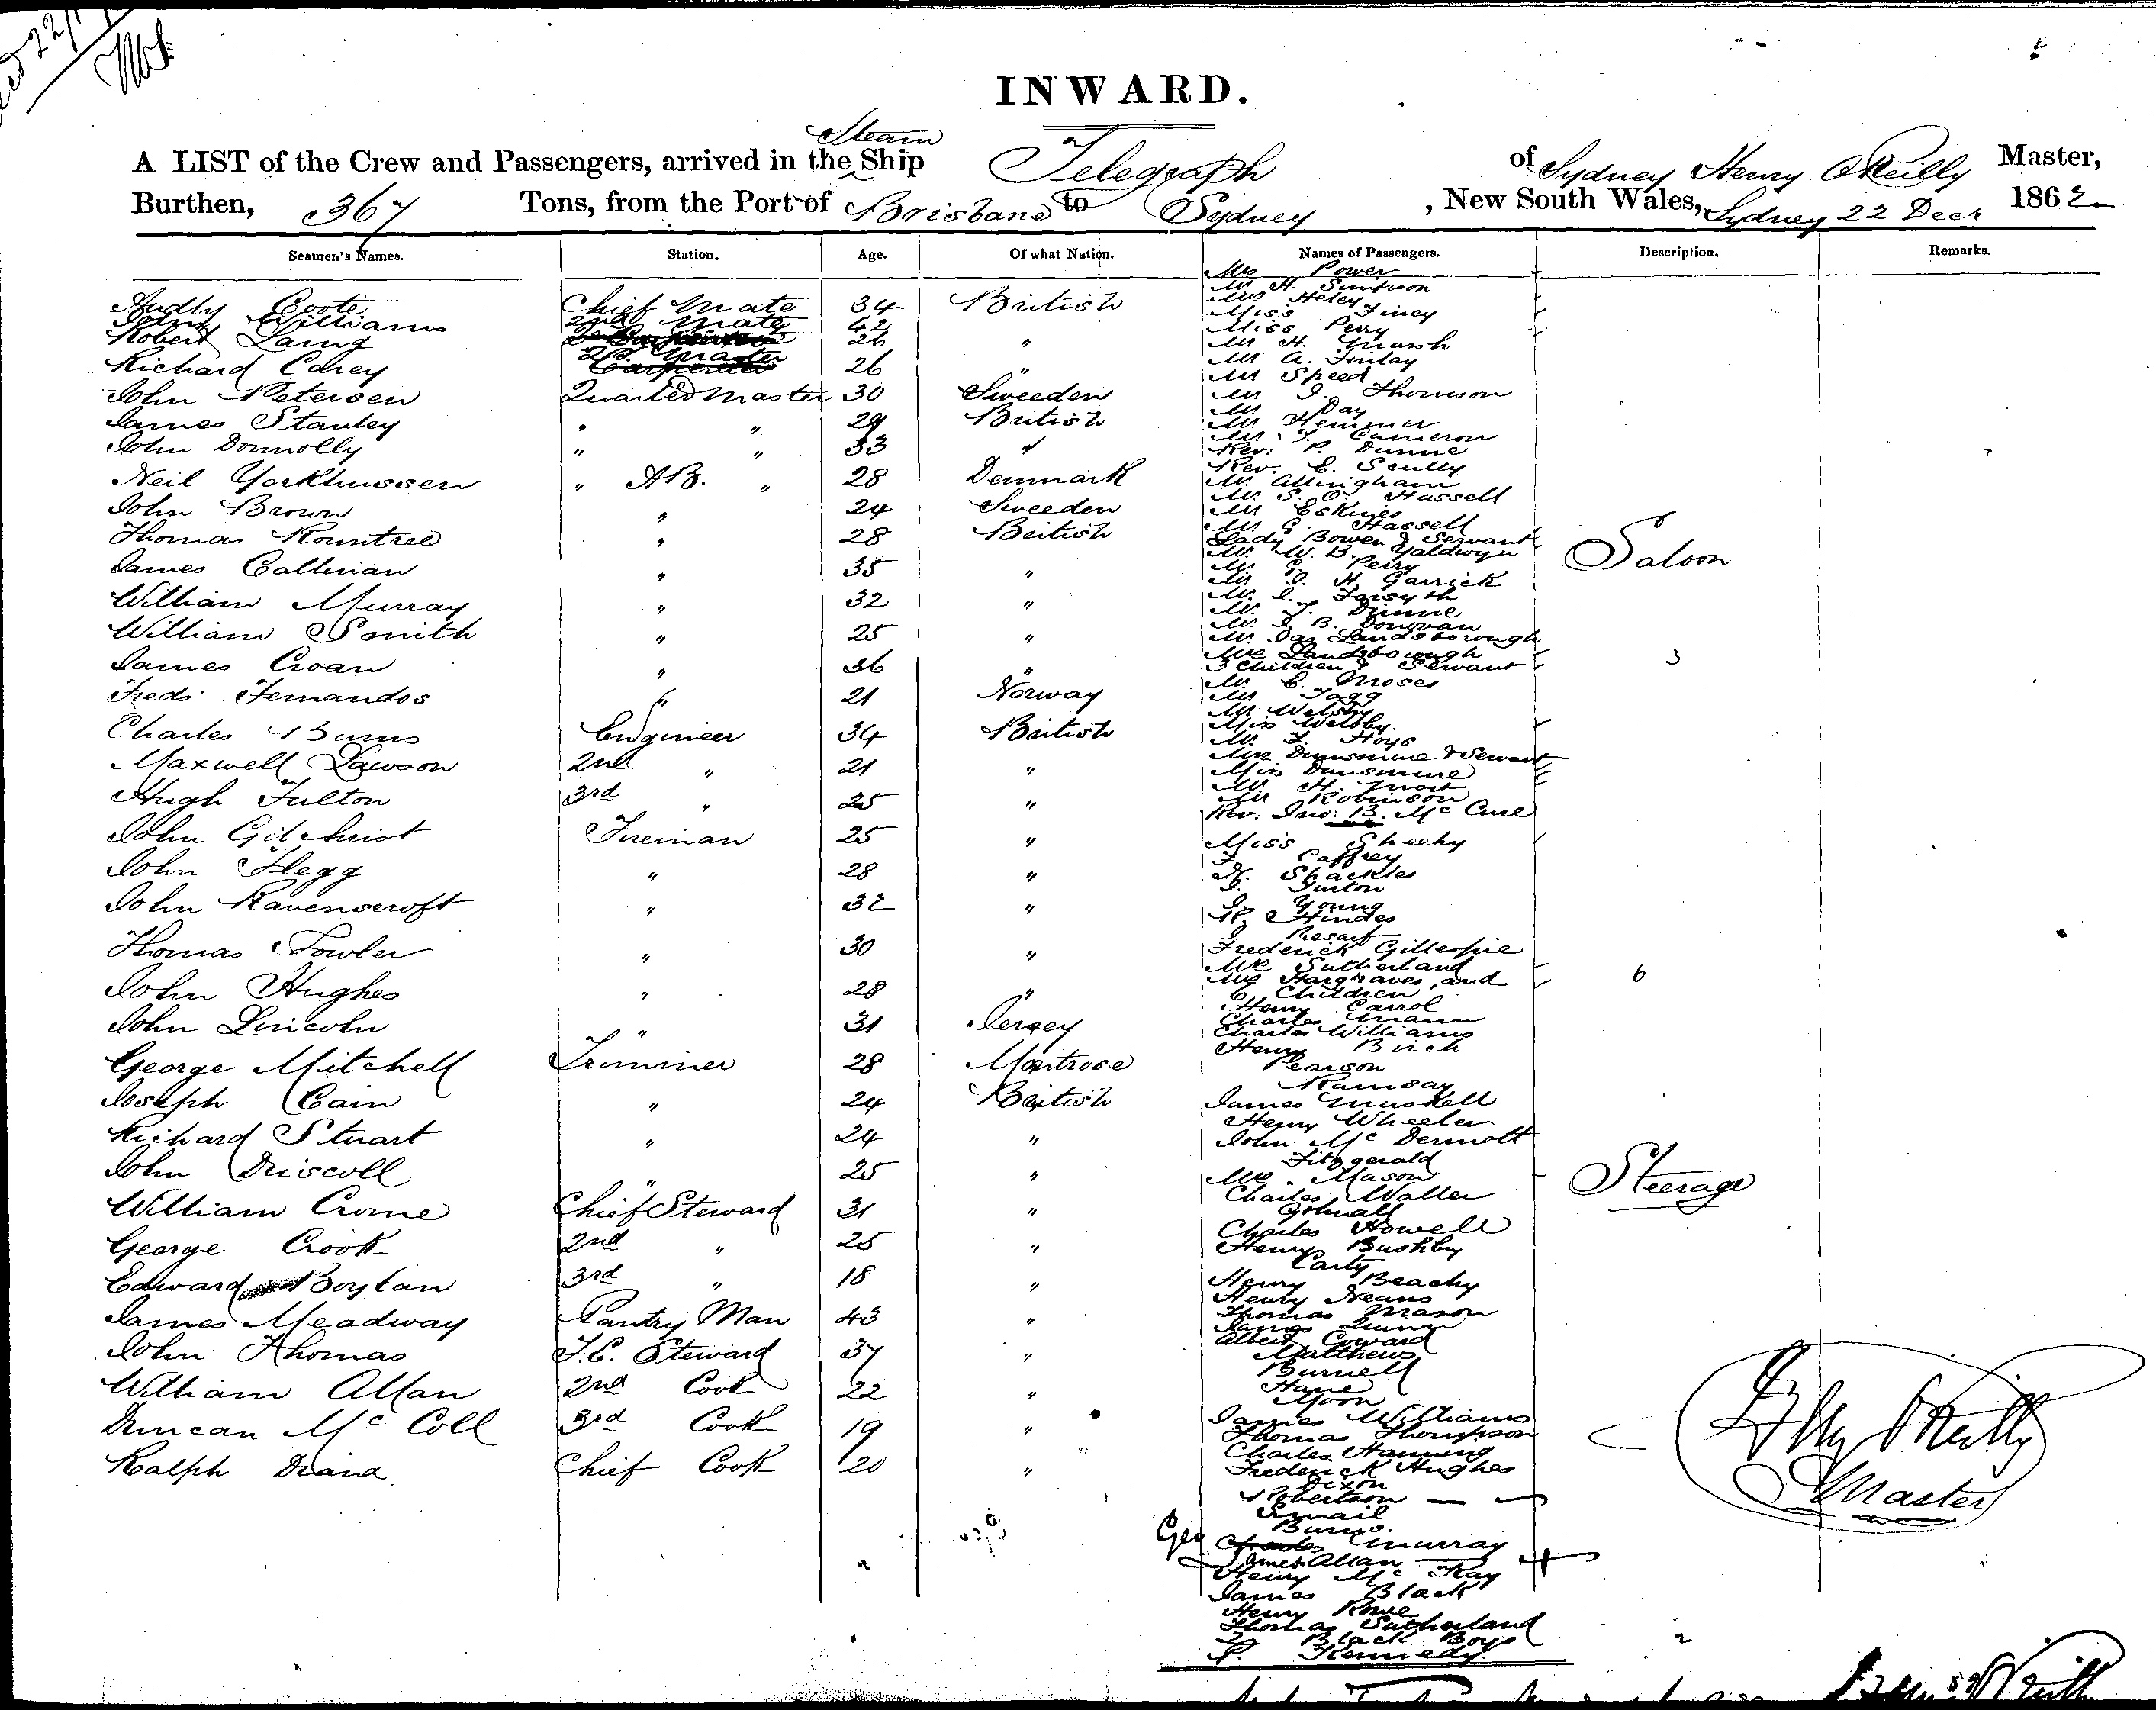 INWARD.
Steam
A LIST of the Crew and Passengers, arrived in the Ship Telegraph of Sydney Henry O'Reilly Master,
Burthen, 367 Tons, from the Port of Brisbane to Sydney, New South Wales, Sydney 22 Decr 1862
Seamen's Names. Station. Age. Of what Nation. Names of Passengers. Description. Remarks.
Audly Coote Chief Mate 34 British
John Williams 2nd Mate 42
Robert Laing 26 "
Richard Carey 26 "
John Petersen Quarter Master 30 Sweeden
James Stanley " " 29 British
John Donnolly " " 33 "
Neil " A.B. " 28 Denmark
John Brown " 24 Sweeden
Thomas Rountree " 28 British
James Callinan " 35 "
William Murray " 32 "
William Smith " 25 "
James Croan " 36 "
Fredk Fernandos " 21 Norway
Charles Burns Engineer 34 British
Maxwell Lawson 2nd " 21 "
Hugh Fulton 3rd " 25 "
John Gilchrist Fireman 25 "
John Flegg " 28 "
John Ravenscroft " 32 "
Thomas Fowler " 30 "
John Hughes " 28 "
John Lincoln " 31 Jersey
George Mitchell Trimmer 28 Montrose
Joseph Cain " 24 British
Richard Stuart " 24 "
John Driscoll " 25 "
William Crome Chief Steward 31 "
George Crook 2nd " 25 "
Edward Boylan 3rd " 18 "
James Meadway Pantry Man 43 "
John Thomas F.C. Steward 37 "
William Allan 2nd Cook 22 "
Duncan Mc Coll 3rd Cook 19 "
Ralph Chief Cook 20 "
Mrs Power
Mr H. Simpson
Mrs Heley
Miss Finey
Miss Perry
Mr H. Marsh
Mr A. Finlay
Mr Speed
Mr J. Thomson
Mr Day
Mr Hemmer
Mr J. Cameron
Rev: P. Dunne
Rev. C. Scully
Mr Allingham
Mr S. O. Hassell
Mr
Mr G. Hassell
Lady Bowen & Servant
Mr W. B. Yaldwyn
Mr G. Perry
Mr J. H. Garrick
Mr J. Forsyth
Mr T. Dunne
Mr J. B. Donovan
Mr Jas Landsborough
Mrs Landsborough
3 children & Servant
Mr C. Moses
Mr Fagg
Mr Welsby
Miss Welsby
Mr F. Hoys
Mrs Dunsmure & Servant
Miss Dunsmure
Mr H.
Mr Robinson
Rev: Jno: B. Mc Cure
Saloon
3
Miss Sheehy
F. Caffrey
N. Shackles
J. Turton
J. Young
R. Hindes
J.
Frederick Gillespie
Mrs Sutherland
Mrs Hargraves, and
6 Children
Henry Carrol
Charles Mann
Charles Williams
Henry Birch
Pearson
Ramsay
James Muskell
Henry Wheeler
John Mc Dermott
Fitzgerald
Mrs Mason
Charles Waller
Charles Howell
Henry Bushby
Carty
Henry Beachy
Henry Neans
Thomas Mason
James Quinn
Albert Coward
Matthews
Burnell
Hane
Moon
James Williams
Thomas Thompson
Charles Hanning
Frederick Hughes
Dixon
Robertson
Smail
Burns
Geo Murray
James Allan
Henry Mc Kay
James Black
Henry Rowe
Thomas Sutherland
2 Black Boys
P. Kennedy
6
Steerage
2
Hy O'Reilly
Master